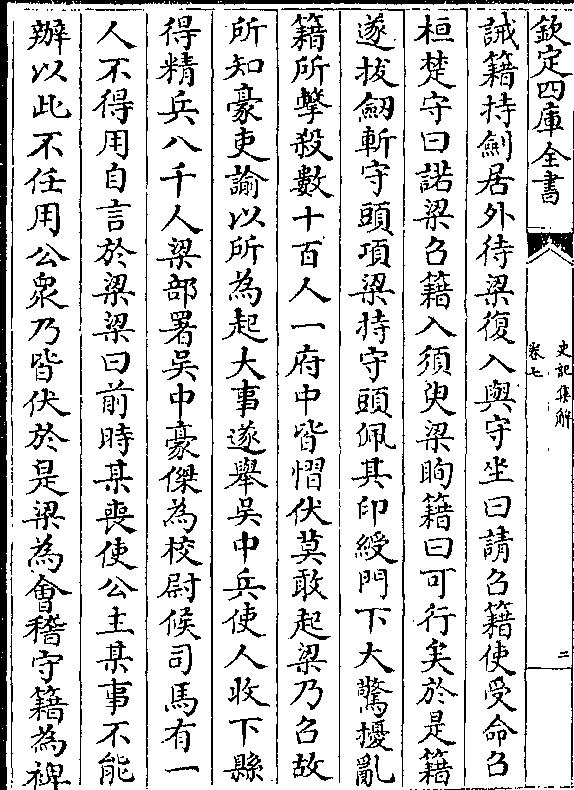 欽定四庫全書
史記集解
卷七
二
誡籍持劍居外待梁復入與守坐曰請召籍使受命召
桓楚守曰諾梁召籍入須臾梁眴籍曰可行矣於是籍
遂拔劒斬守頭項梁持守頭佩其印綬門下大驚擾亂
籍所擊殺數十百人一府中皆慴伏莫敢起梁乃召故
所知豪吏諭以所為起大事遂舉吳中兵使人收下縣
得精兵八千人梁部署吳中豪傑為校尉候司馬有一
人不得用自言於梁梁曰前時某喪使公主某事不能
辦以此不任用公衆乃皆伏於是梁為會稽守籍為裨